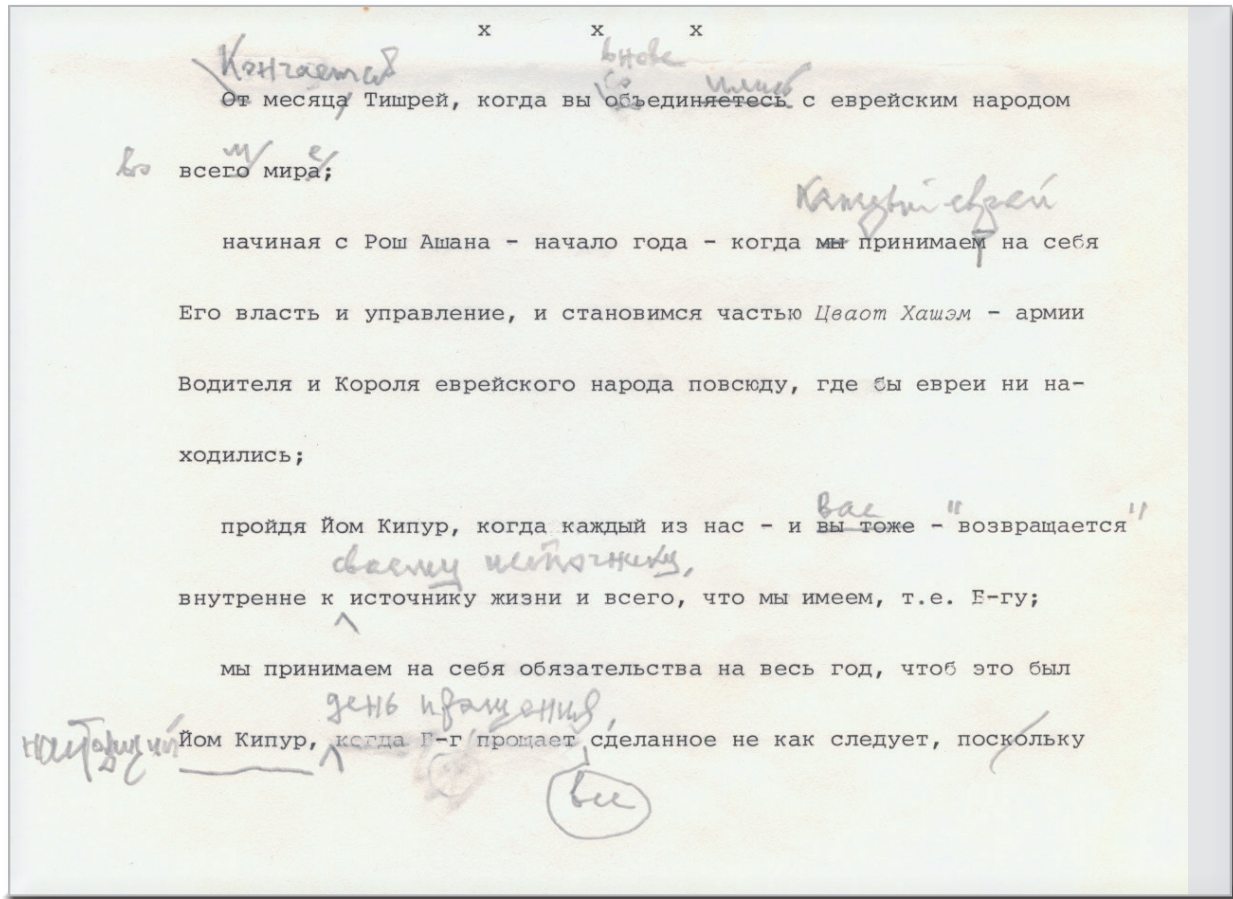 х х х
Кончается внове
со ились
От месяца Тишрей, когда вы объединяетесь с еврейским народом
во м е
всего мира;
Каждый еврей
начиная с Рош Ашана - начало года - когда мы принимаем на себя
Его власть и управление, и становимся частью Цваот Хашэм - армии
Водителя и Короля еврейского народа повсюду, где бы евреи ни на-
ходились;
вас
пройдя Йом Кипур, когда каждый из нас - и вы тоже - "возвращается"
своему источнику,
внутренне к источнику жизни и всего, что мы имеем, т.е. Б-гу;
мы принимаем на себя обязательства на весь год, чтоб это был
день прощения,
настоящий Йом Кипур, когда Б-г прощает сделанное не как следует, поскольку
все